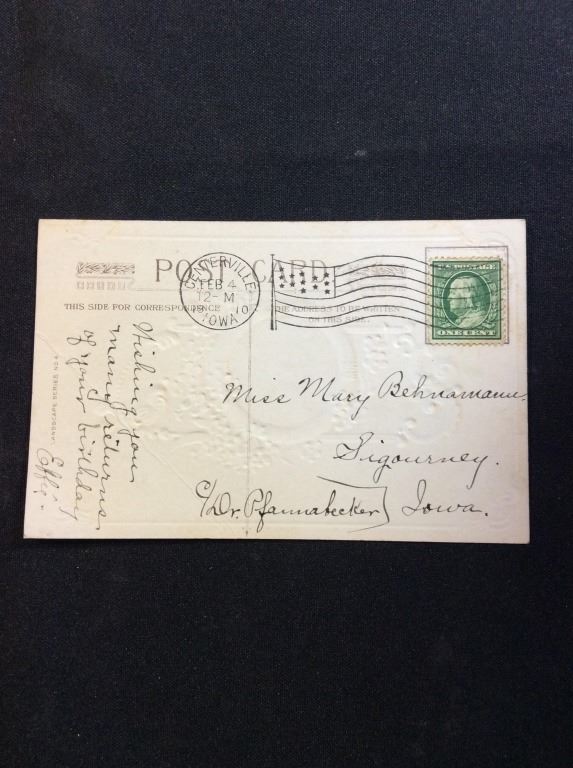 POST CARD
THIS SIDE FOR CORRESPONDENCE
THE ADDRESS TO BE WRITTEN
ON THIS SIDE.
CENTERVILLE
FEB 4
12-M
19 10
IOWA
U.S. POSTAGE
ONE CENT
Wishing you
many returns
of your birthday
Effie.
Miss Mary Behnamann
Sigourney.
c/o Dr. Pfannabecker) Iowa.
LANDSCAPE SERIES NO.